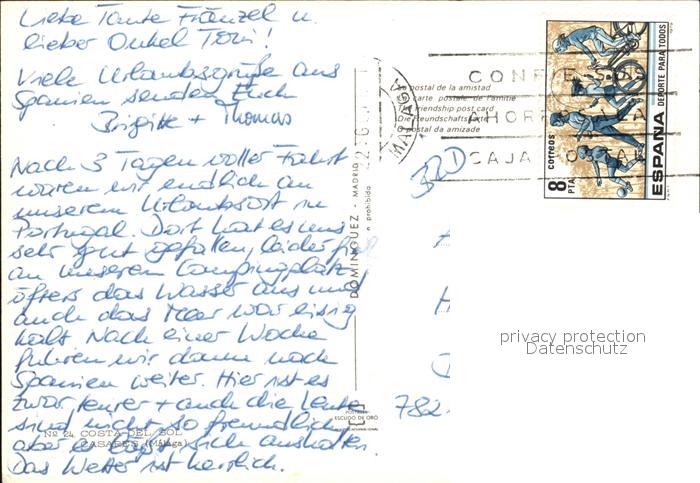 Liebe Tante Fränzel u.
lieber Onkel Toni!
Viele Urlaubsgrüße aus
Spanien senden Euch
Brigitte + Thomas
Nach 3 Tagen voller Fahrt
waren wir endlich an
unserem Urlaubsort in
Portugal. Dort hat es uns
sehr gut gefallen, leider fiel
an unserem Campingplatz
öfters das Wasser aus und
auch das Meer war eisig
kalt. Nach einer Woche
fuhren wir dann nach
Spanien weiter. Hier ist es
zwar teurer + auch die Leute
sind nicht so freundlich
aber es lässt sich aushalten.
Das Wetter ist herrlich.
Nº 24 COSTA DEL SOL
CASARES (Málaga)
DOMINGUEZ - MADRID
prohibida
La postal de la amistad
La carte postale de l'amitié
The friendship post card
Die Freundschaftskarte
O postal da amizade
MALAGA
CAJA POSTAL
correos
8 PTA
ESPAÑA
DEPORTE PARA TODOS
BRD
782
ESCUDO DE ORO
privacy protection
Datenschutz